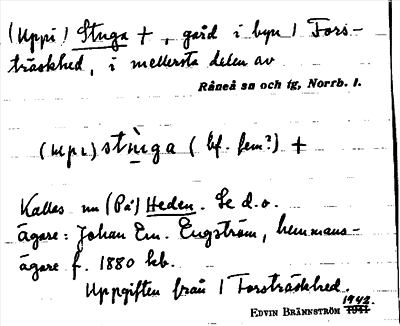 (Uppi) Stuga +, gård i byn 1 Fors-
träskhed, i mellersta delen av
Råneå sn och tg, Norrb. l.
(upi) stùga (bf. fem?) +
Kallas nu (På) Heden. Se d.o.
ägare: Johan Em. Engström, hemmans-
ägare f. 1880 hb.
Uppgiften från 1 Forsträskhed.
1942.
EDVIN BRÄNNSTRÖM 1941